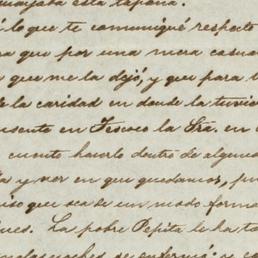 esta tapona.
lo que te comuniqué respecto
que por una mera casua
que me la dejó, y que para
la caridad en donde la tuvie
en Tescoco la Sra. en
cuento hacerlo dentro de algun
y ver en que quedamos, pu
que sea de un modo forma
La pobre Pepita le ha to